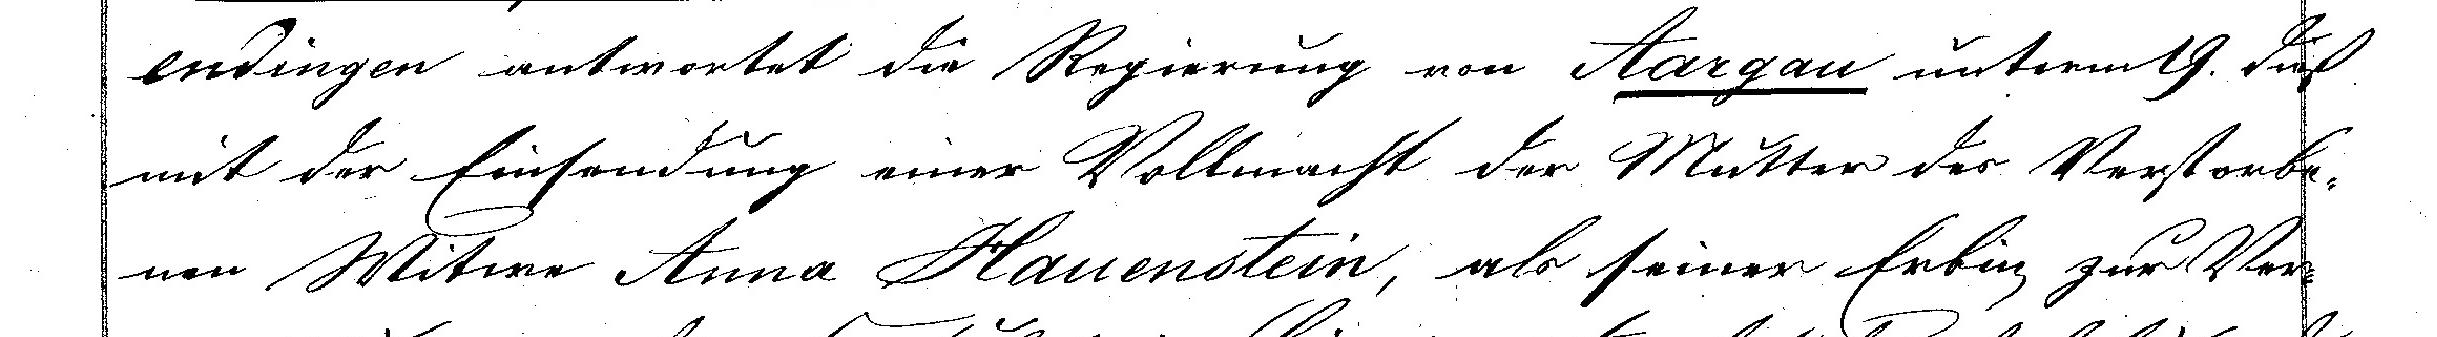 endingen antwortet die Regierung von Aargau unterm 19. dieß
mit der Einsendung einer Vollmacht der Mutter des Verstorbe-
nen Witwe Anna Hauenstein, als seiner Erbin zur Ver-